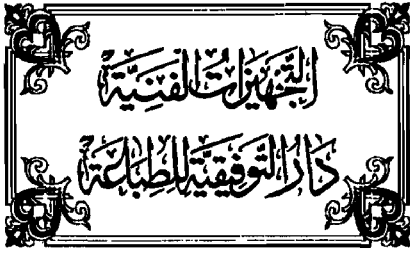 التَّجْهِيزَاتُ الفَنِيَّةُ
دَارُ التَّوْفِيقِيَّةِ لِلطِّبَاعَةِ